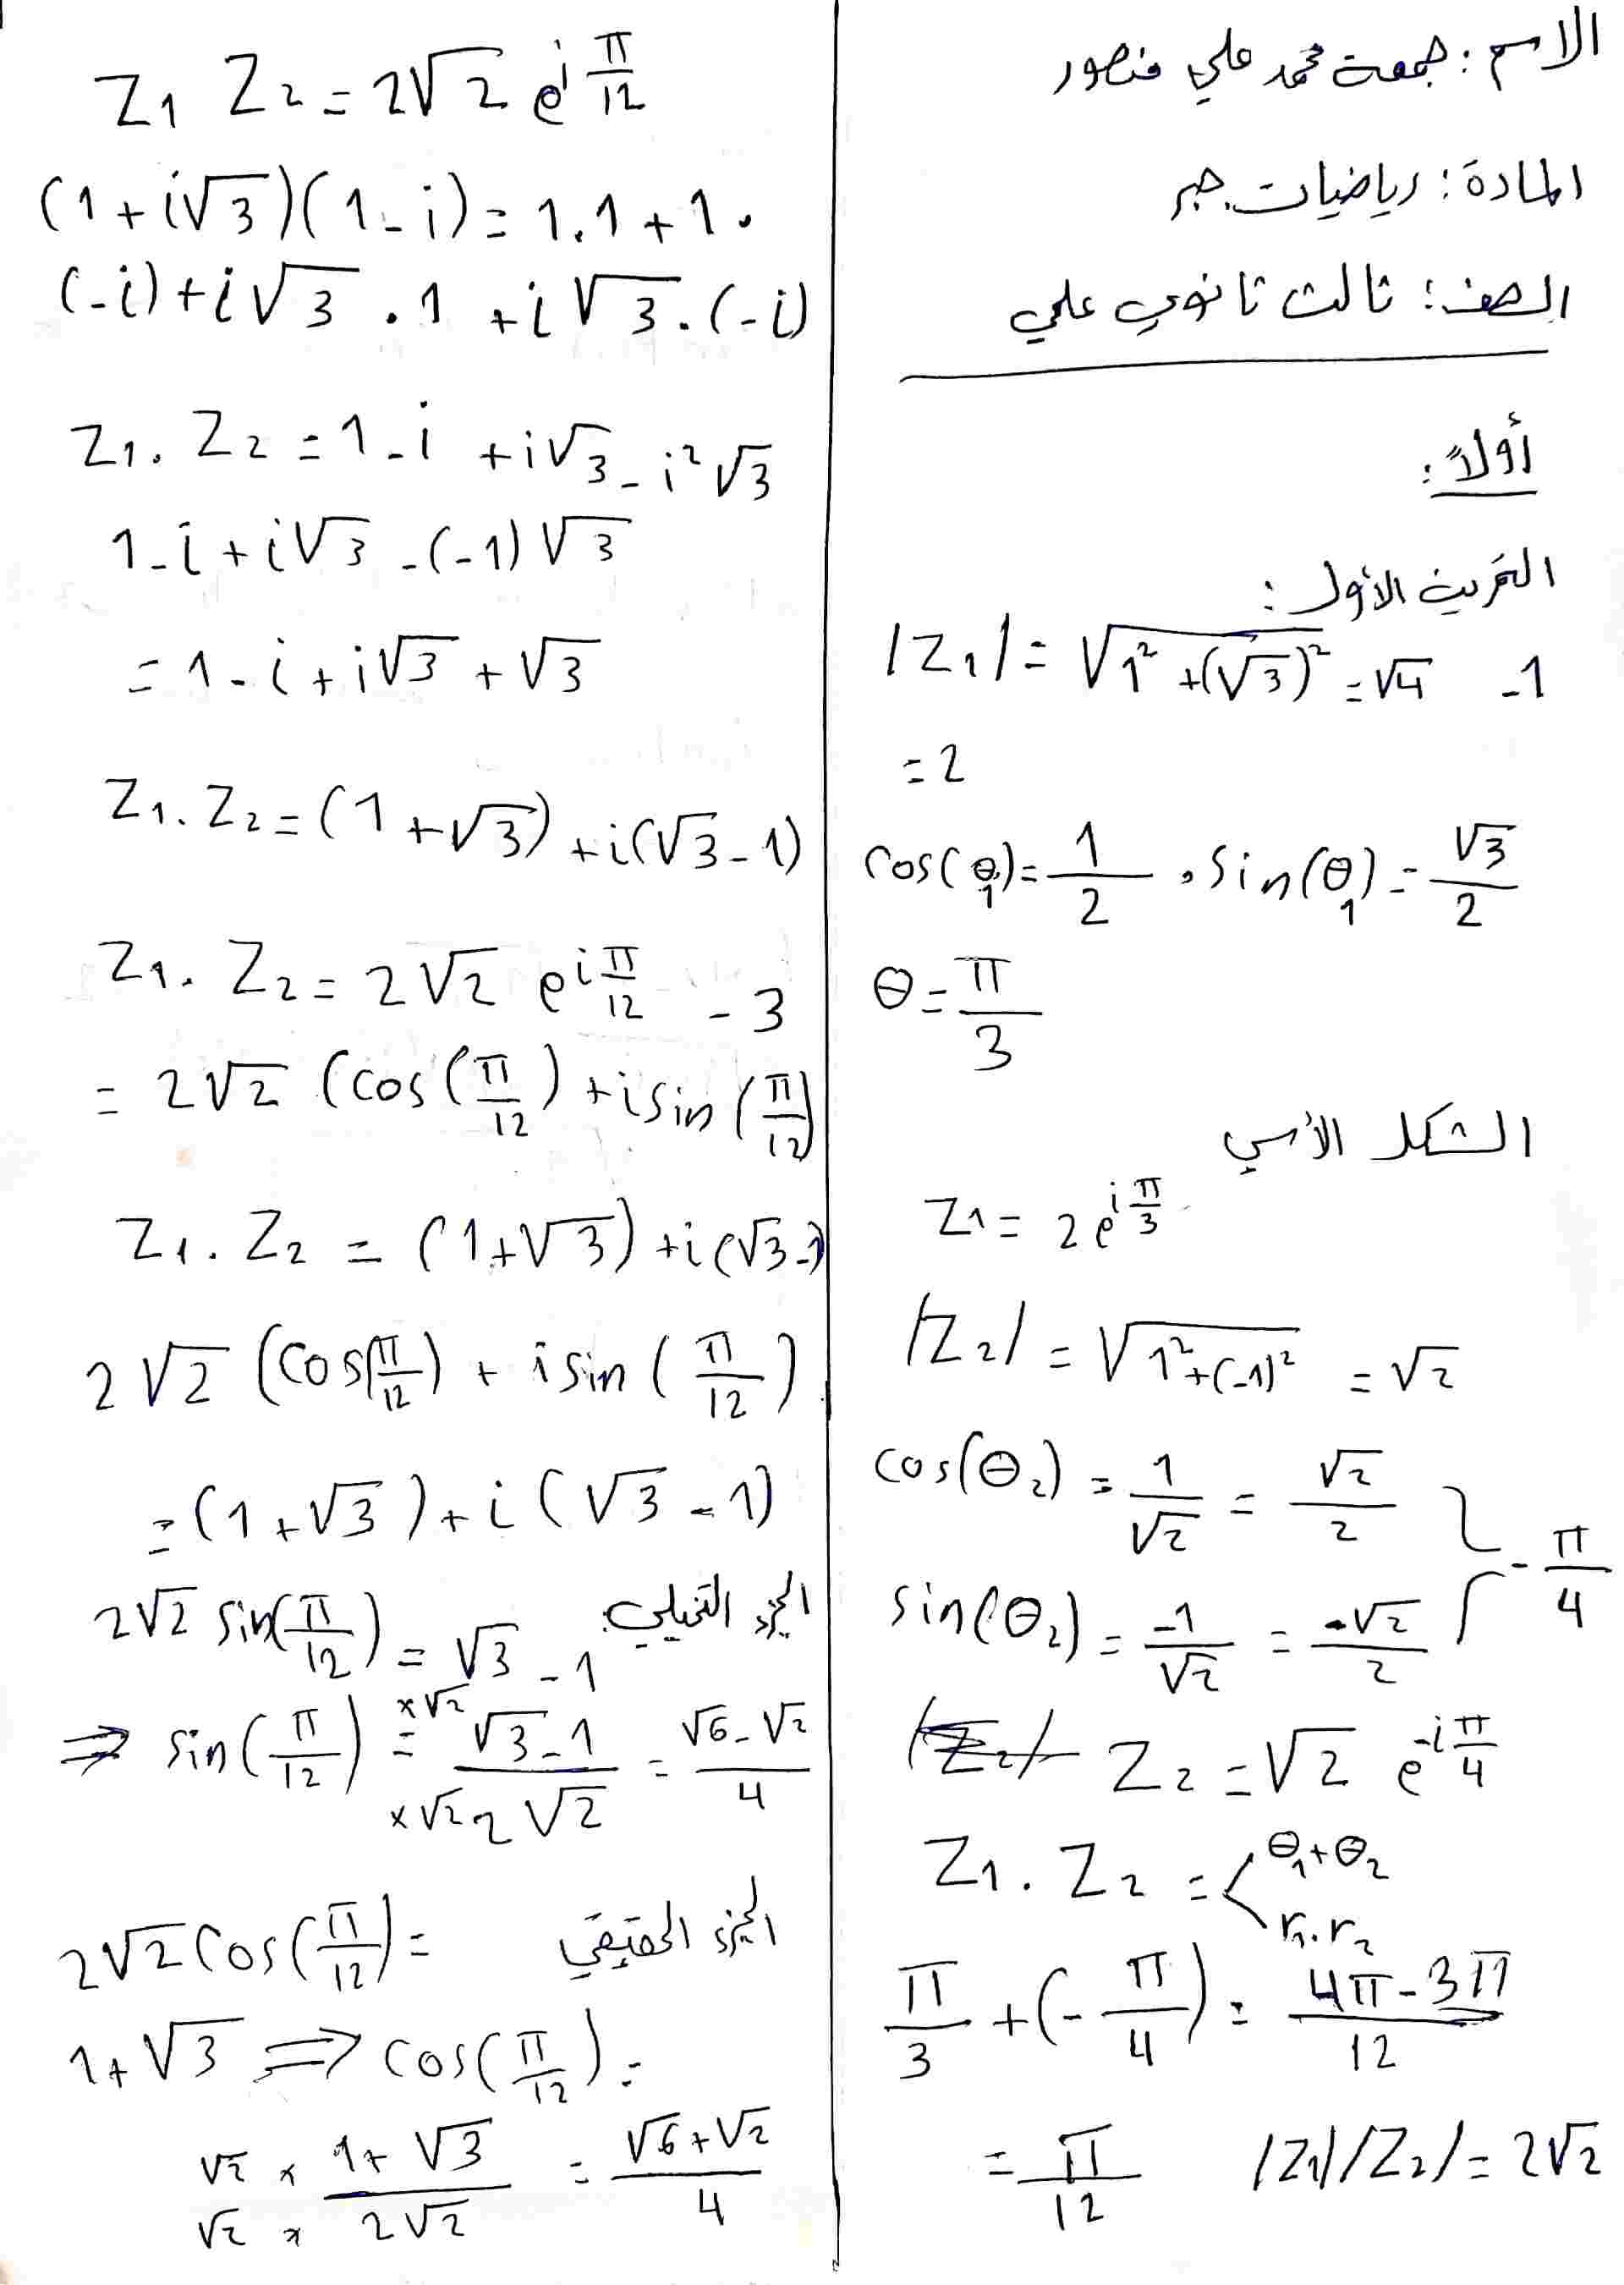 الاسم: جمعة محمد علي منصور
المادة: رياضيات جبر
الصف: ثالث ثانوي علمي
أولاً:
التمرين الأول:
|Z₁| = √(1² + (√3)²) = √4 -1
= 2
cos(θ₁) = 1/2 , sin(θ₁) = √3/2
θ = π/3
الشكل الأسي
Z₁ = 2 e^(i π/3)
|Z₂| = √(1² + (-1)²) = √2
cos(θ₂) = 1/√2 = √2/2
sin(θ₂) = -1/√2 = -√2/2 } -π/4
Z₂ = √2 e^(-i π/4)
Z₁ . Z₂ = < θ₁ + θ₂
r₁ . r₂
π/3 + (-π/4) = (4π - 3π)/12
= π/12 |Z₁||Z₂| = 2√2
Z₁ Z₂ = 2√2 e^(i π/12)
(1 + i√3)(1 - i) = 1.1 + 1.
(-i) + i√3 . 1 + i√3 . (-i)
Z₁ . Z₂ = 1 - i + i√3 - i²√3
1 - i + i√3 - (-1)√3
= 1 - i + i√3 + √3
Z₁ . Z₂ = (1 + √3) + i(√3 - 1)
Z₁ . Z₂ = 2√2 e^(i π/12) -3
= 2√2 (cos(π/12) + i sin(π/12)
Z₁ . Z₂ = (1 + √3) + i(√3 - 1)
2√2 (cos(π/12) + i sin(π/12)
= (1 + √3) + i(√3 - 1)
2√2 sin(π/12) = √3 - 1 الجزء التخيلي
⇒ sin(π/12) = ×√2 (√3 - 1) / ×√2 2√2 = (√6 - √2)/4
2√2 cos(π/12) = الجزء الحقيقي
1 + √3 ⇒ cos(π/12) =
√2 × (1 + √3) / √2 × 2√2 = (√6 + √2)/4